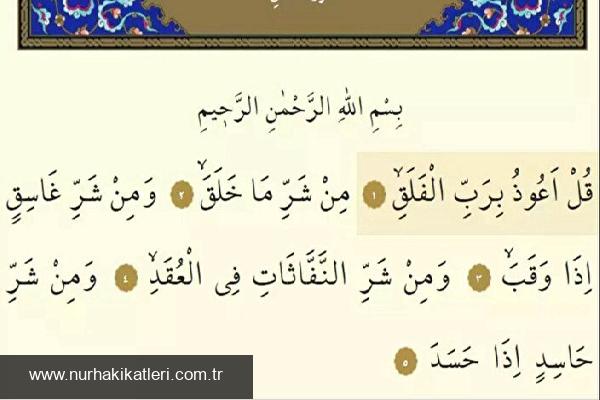 بِسْمِ اللّٰهِ الرَّحْمٰنِ الرَّح۪يمِ
قُلْ اَعُوذُ بِرَبِّ الْفَلَقِۙ ﴿١﴾ مِنْ شَرِّ مَا خَلَقَۙ ﴿٢﴾ وَمِنْ شَرِّ غَاسِقٍ
اِذَا وَقَبَۙ ﴿٣﴾ وَمِنْ شَرِّ النَّفَّاثَاتِ فِي الْعُقَدِۙ ﴿٤﴾ وَمِنْ شَرِّ
حَاسِدٍ اِذَا حَسَدَ ﴿٥﴾
www.nurhakikatleri.com.tr